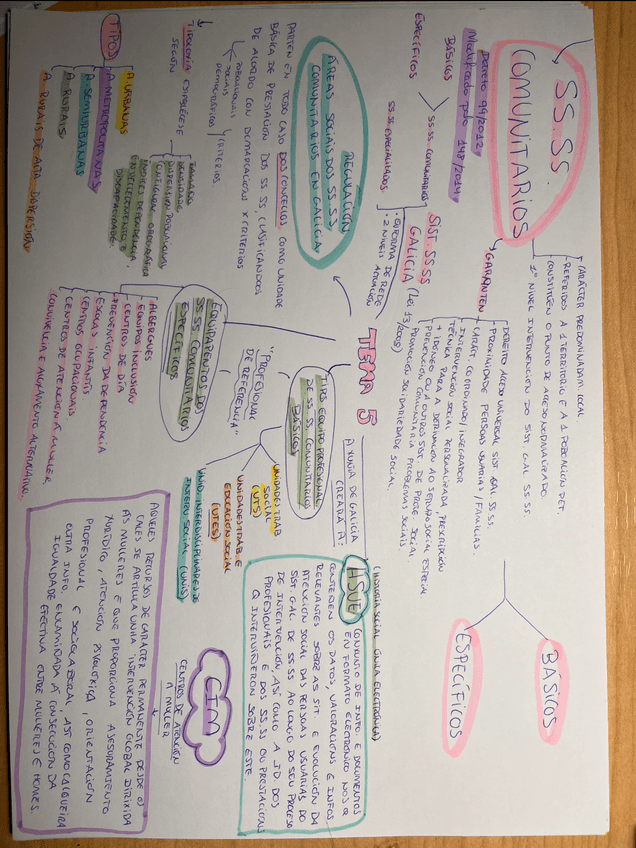 SS.SS.
COMUNITARIOS
Decreto 99/2012
Modificado polo 148/2014
BÁSICOS
ESPECÍFICOS
SS.SS. COMUNITARIOS
SS.SS. ESPECIALIZADOS
SIST. SS.SS
GALICIA (Lei 13/2008)
2 NIVEIS
CARÁCTER PREDOMINANTEM. LOCAL.
REFERIDOS A 1 TERRITORIO E A 1 POBOACIÓN DET.
CONSTITÚEN O PUNTO DE ACCESO NORMALIZADO.
1º NIVEL INTERVENCIÓN DO SIST GAL SS.SS.
GARANTEN
DEREITO ACCESO UNIVERSAL SIST. GAL. SS.SS.
PROXIMIDADE PERSOAS USUARIAS / FAMILIAS.
CARÁCT. COORDINADO / INTEGRADOR
INTERVENCIÓN SOCIAL PERSONALIZADA, PRESCRIPCIÓN
TÉCNICA PARA A DERIVACIÓN AO
+ IDÓNEO OU A OUTROS SIST. DE PROTE. SOCIAL.
PREVENCIÓN COMUNITARIA PROBLEMAS SOCIAIS.
PROMOCIÓN SOLIDARIEDADE SOCIAL.
BÁSICOS
ESPECÍFICOS
REGULACIÓN
ÁREAS SOCIAIS DOS SS.SS
COMUNITARIOS EN GALICIA
PARTEN EN TODO CASO DOS CONCELLOS, COMO UNIDADE
BÁSICA DE PRESTACIÓN DOS SS.SS, CLASIFICÁNDOOS
DE ACORDO CON DEMARCACIÓNS X CRITERIOS
POBOACIONAIS
SOCIAIS
DEMOGRÁFICOS
CRITERIOS
TIPOLOXÍA
SEGÚN
TAMAÑO
DENSIDADE
DISPERSIÓN POBOACIONAL
CONTIGÜIDADE XEOGRÁFICA
ENVELLECEMENTO E
DISCAPACIDADE.
TIPOS
A. URBANAS
A. METROPOLITANAS
A. SEMIURBANAS
A. RURAIS
A. RURAIS DE ALTA DISPERSIÓN
TEMA 5
EQUIPAMENTOS DOS
SS.SS COMUNITARIOS
ESPECÍFICOS
ALBERGUES
EQUIPOS INCLUSIÓN
CENTROS DE DÍA
PREVENCIÓN DA DEPENDENCIA
ESCOLAS INFANTÍS
CENTROS OCUPACIONAIS
CENTROS DE ATENCIÓN Á MULLER
CONVIVENCIA E ALOXAMENTO ALTERNATIVO.
TIPOS EQUIPO PROFESIONAL
DE SS.SS COMUNITARIOS
BÁSICOS
"PROFESIONAL
DE REFERENCIA"
UNIDADES TRAB
SOCIAL
(UTS)
UNIDADES TRAB E
EDUCACIÓN SOCIAL
(UTES)
UNID. INTERDISCIPLINARES DE
INTERV. SOCIAL (UNIS)
A XUNTA DE GALICIA
CREARÁ A:
HSUE
(HISTORIA SOCIAL ÚNICA ELECTRÓNICA)
CONXUNTO DE INFO. E DOCUMENTOS
EN FORMATO ELECTRÓNICO NOS Q
CONTEÑEN OS DATOS, VALORACIÓNS E INFOS
RELEVANTES SOBRE AS SIT. E EVOLUCIÓN DA
ATENCIÓN SOCIAL DAS PERSOAS USUARIAS DO
SIST. GAL. DE SS.SS AO LONGO DO SEU PROCESO
DE INTERVENCIÓN, ASÍ COMO A ID. DOS
PROFESIONAIS E DOS SS.SS OU PRESTACIÓNS
Q INTERVIÑERON SOBRE ESTE.
CIM
CENTRO DE ATENCIÓN
Á MULLER
AQUELES RECURSOS DE CARÁCTER PERMANENTE DESDE OS
CALES SE ARTICULA UNHA INTERVENCIÓN GLOBAL DIRIXIDA
ÁS MULLERES E QUE PROPORCIONA ASESORAMENTO
XURÍDICO, ATENCIÓN PSICOLÓXICA, ORIENTACIÓN
PROFESIONAL E SOCIOLABORAL, ASÍ COMO CALQUERA
OUTRA INFO. ENCAMIÑADA Á CONSECUCIÓN DA
IGUALDADE EFECTIVA ENTRE MULLERES E HOMES.